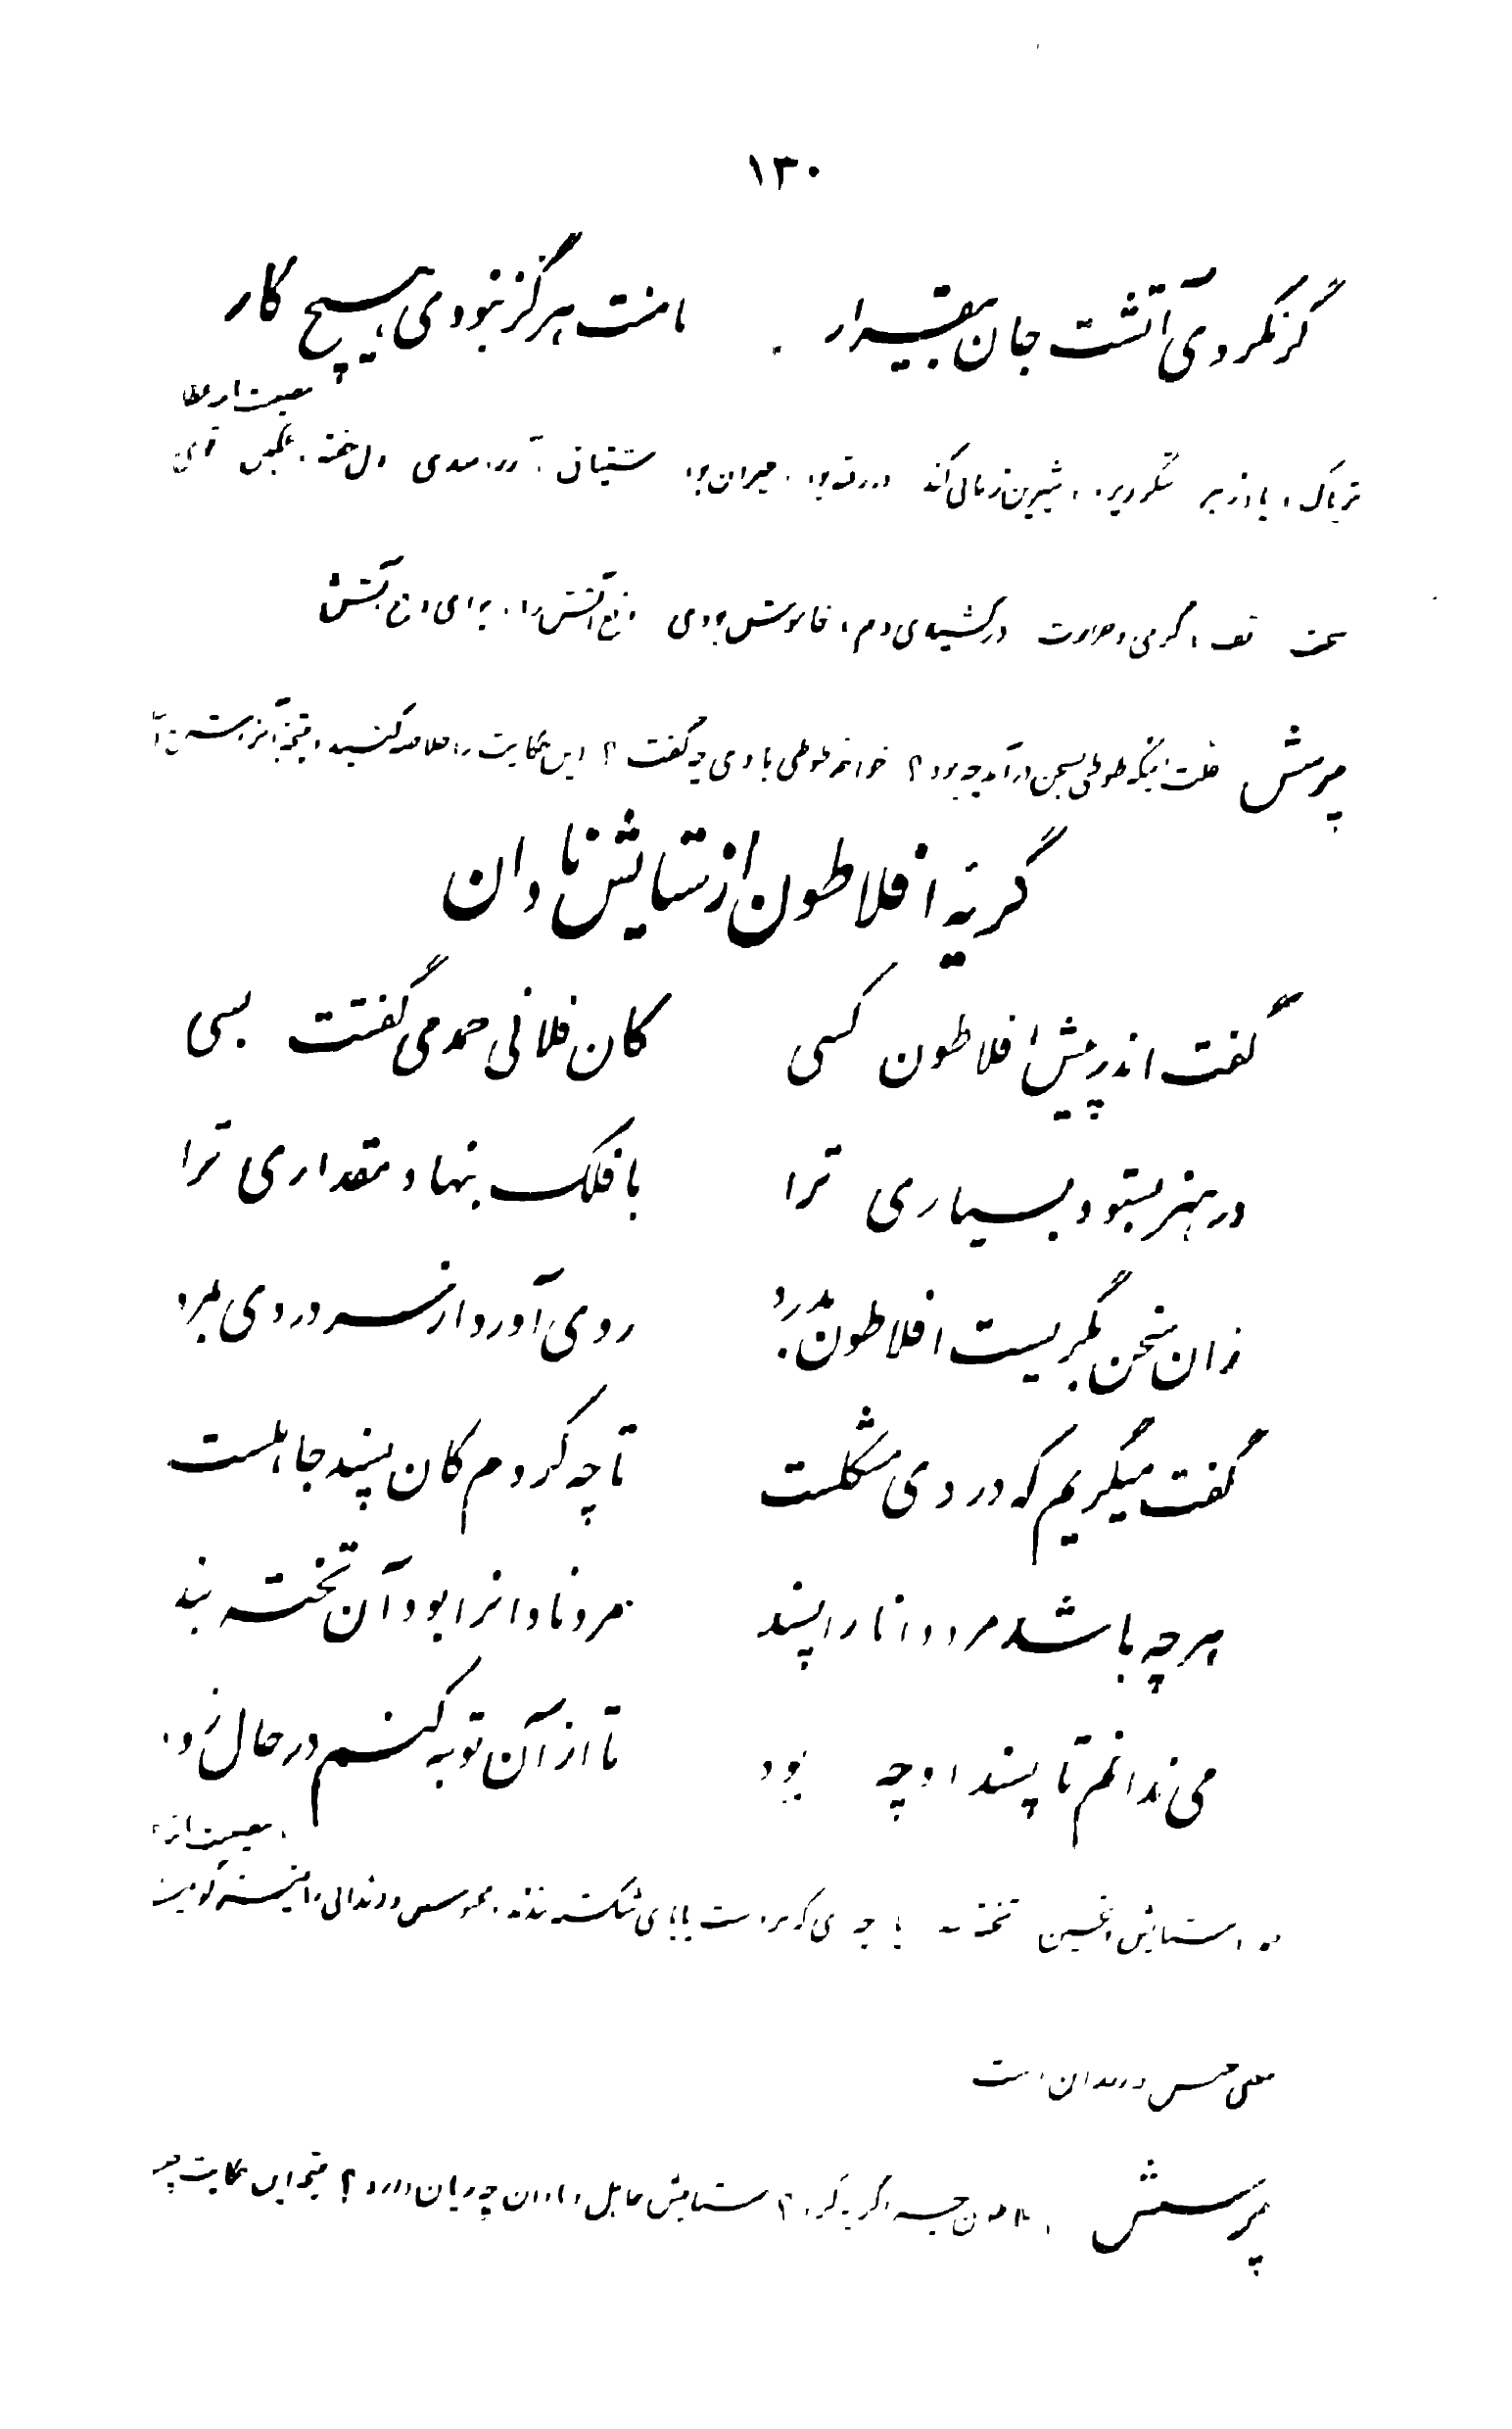 ۱۳۰
گر نکردی آتشت جان بیقرار با منت هرگز نبودی هیچ کار
مصیبت
تریاک، پادزهر شکرریز، شیرین زبانی کند حیران بود، مشتاق دل خسته، غمگین
تف، گرمی و حرارت درکشیدی دم، خاموش بودی دفع آتش را، برای دفع آتش
پرسش علت اینکه طوطی بسخن درآمد چه بود؟ طوطی با وی چه گفت؟ این حکایت را خلاصه کنید و نتیجه
گریهٔ افلاطون از ستایش نادان
گفت اندر پیش افلاطون کسی کان فلانی حمد می‌گفتت بسی
در هنر بستود بسیاری ترا با فلک بنهاد مقداری ترا
زان سخن بگریست افلاطون بدرد روی آورد از سر دردی بمرد
گفت میگریم که دردی مشکلست تا چه کردم کان پسند جاهلست
هر چه باشد مرد دانا را پسند مرد نادانرا بود آن تخته بند
می ندانم تا پسند او چه بود تا از آن توبه کنم در حال زود
ستایش، تحسین تخته پارچه‌ی که بر دست یا پای شکسته بندند، محبوس و زندانی
معنی حبس و زندان است
پرسش چرا گریه کرد؟ ستایش جاهل و نادان چه زیان دارد؟ نتیجه این حکایت چیست